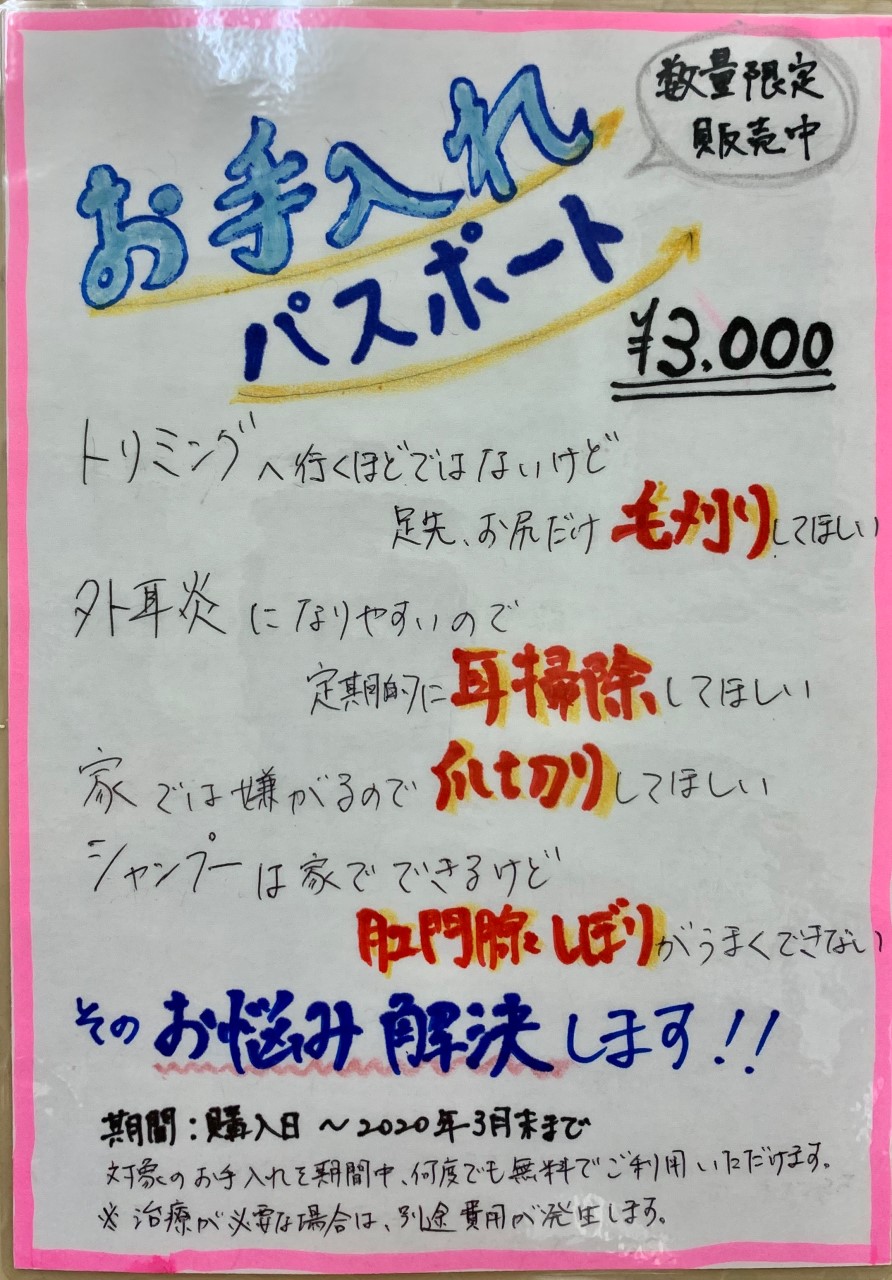 数量限定
販売中
お手入れ
パスポート
¥3.000
トリミングへ行くほどではないけど
足先、お尻だけ毛刈りしてほしい
外耳炎になりやすいので
定期的に耳掃除してほしい
家では嫌がるので爪切りしてほしい
シャンプーは家でできるけど
肛門腺しぼりがうまくできない
そのお悩み解決します!!
期間:購入日~2020年3月末まで
対象のお手入れを期間中、何度でも無料でご利用いただけます。
※治療が必要な場合は、別途費用が発生します。